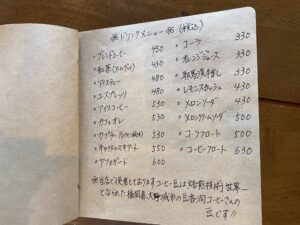 ※ドリンクメニュー※ (税込)
・ブレンドコーヒー 450
・紅茶(アールグレイ) 430
・アイスティー 480
・エスプレッソ 480
・アイスコーヒー 530
・カフェオレ 530
・カプチーノ 530
・キャラメルマキアート 550
・アフォガード 600
・コーラ 330
・オレンジジュース 330
330
・レモンスカッシュ 430
・メロンソーダ 430
・メロンクリームソーダ 500
・コークフロート 500
・コーヒーフロート 630
※当店で使用しておりますコーヒー豆は焙煎技術世界一
となられた福岡県大野城市の豆香洞コーヒーさんの
豆です!!